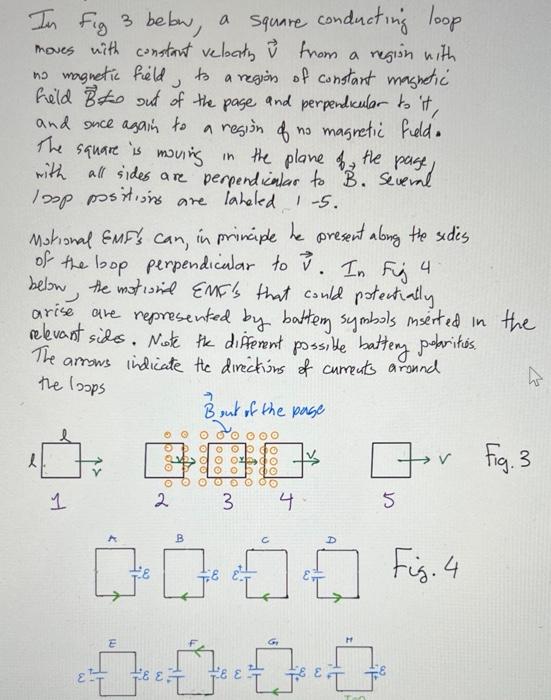 In Fig 3 below, a square conducting loop
moves with constant velocity V from a region with
no magnetic field, to a region of constant magnetic
field B≠0 out of the page and perpendicular to it,
and once again to a region of no magnetic field.
The square is moving in the plane of the page,
with all sides are perpendicular to B. Several
loop positions are labeled 1-5.
Motional EMF's can, in principle be present along the sides
of the loop perpendicular to V. In Fig 4
below, the motional EMF's that could potentially
arise are represented by battery symbols inserted in the
relevant sides. Note the different possible battery polarities.
The arrows indicate the directions of currents around
the loops
B out of the page
l
l
V
V
V
V
V
Fig. 3
1 2 3 4 5
A B C D
Fig. 4
+ ε + ε ε + ε +
E F G H
ε + + ε ε + + ε ε + + ε ε + + ε